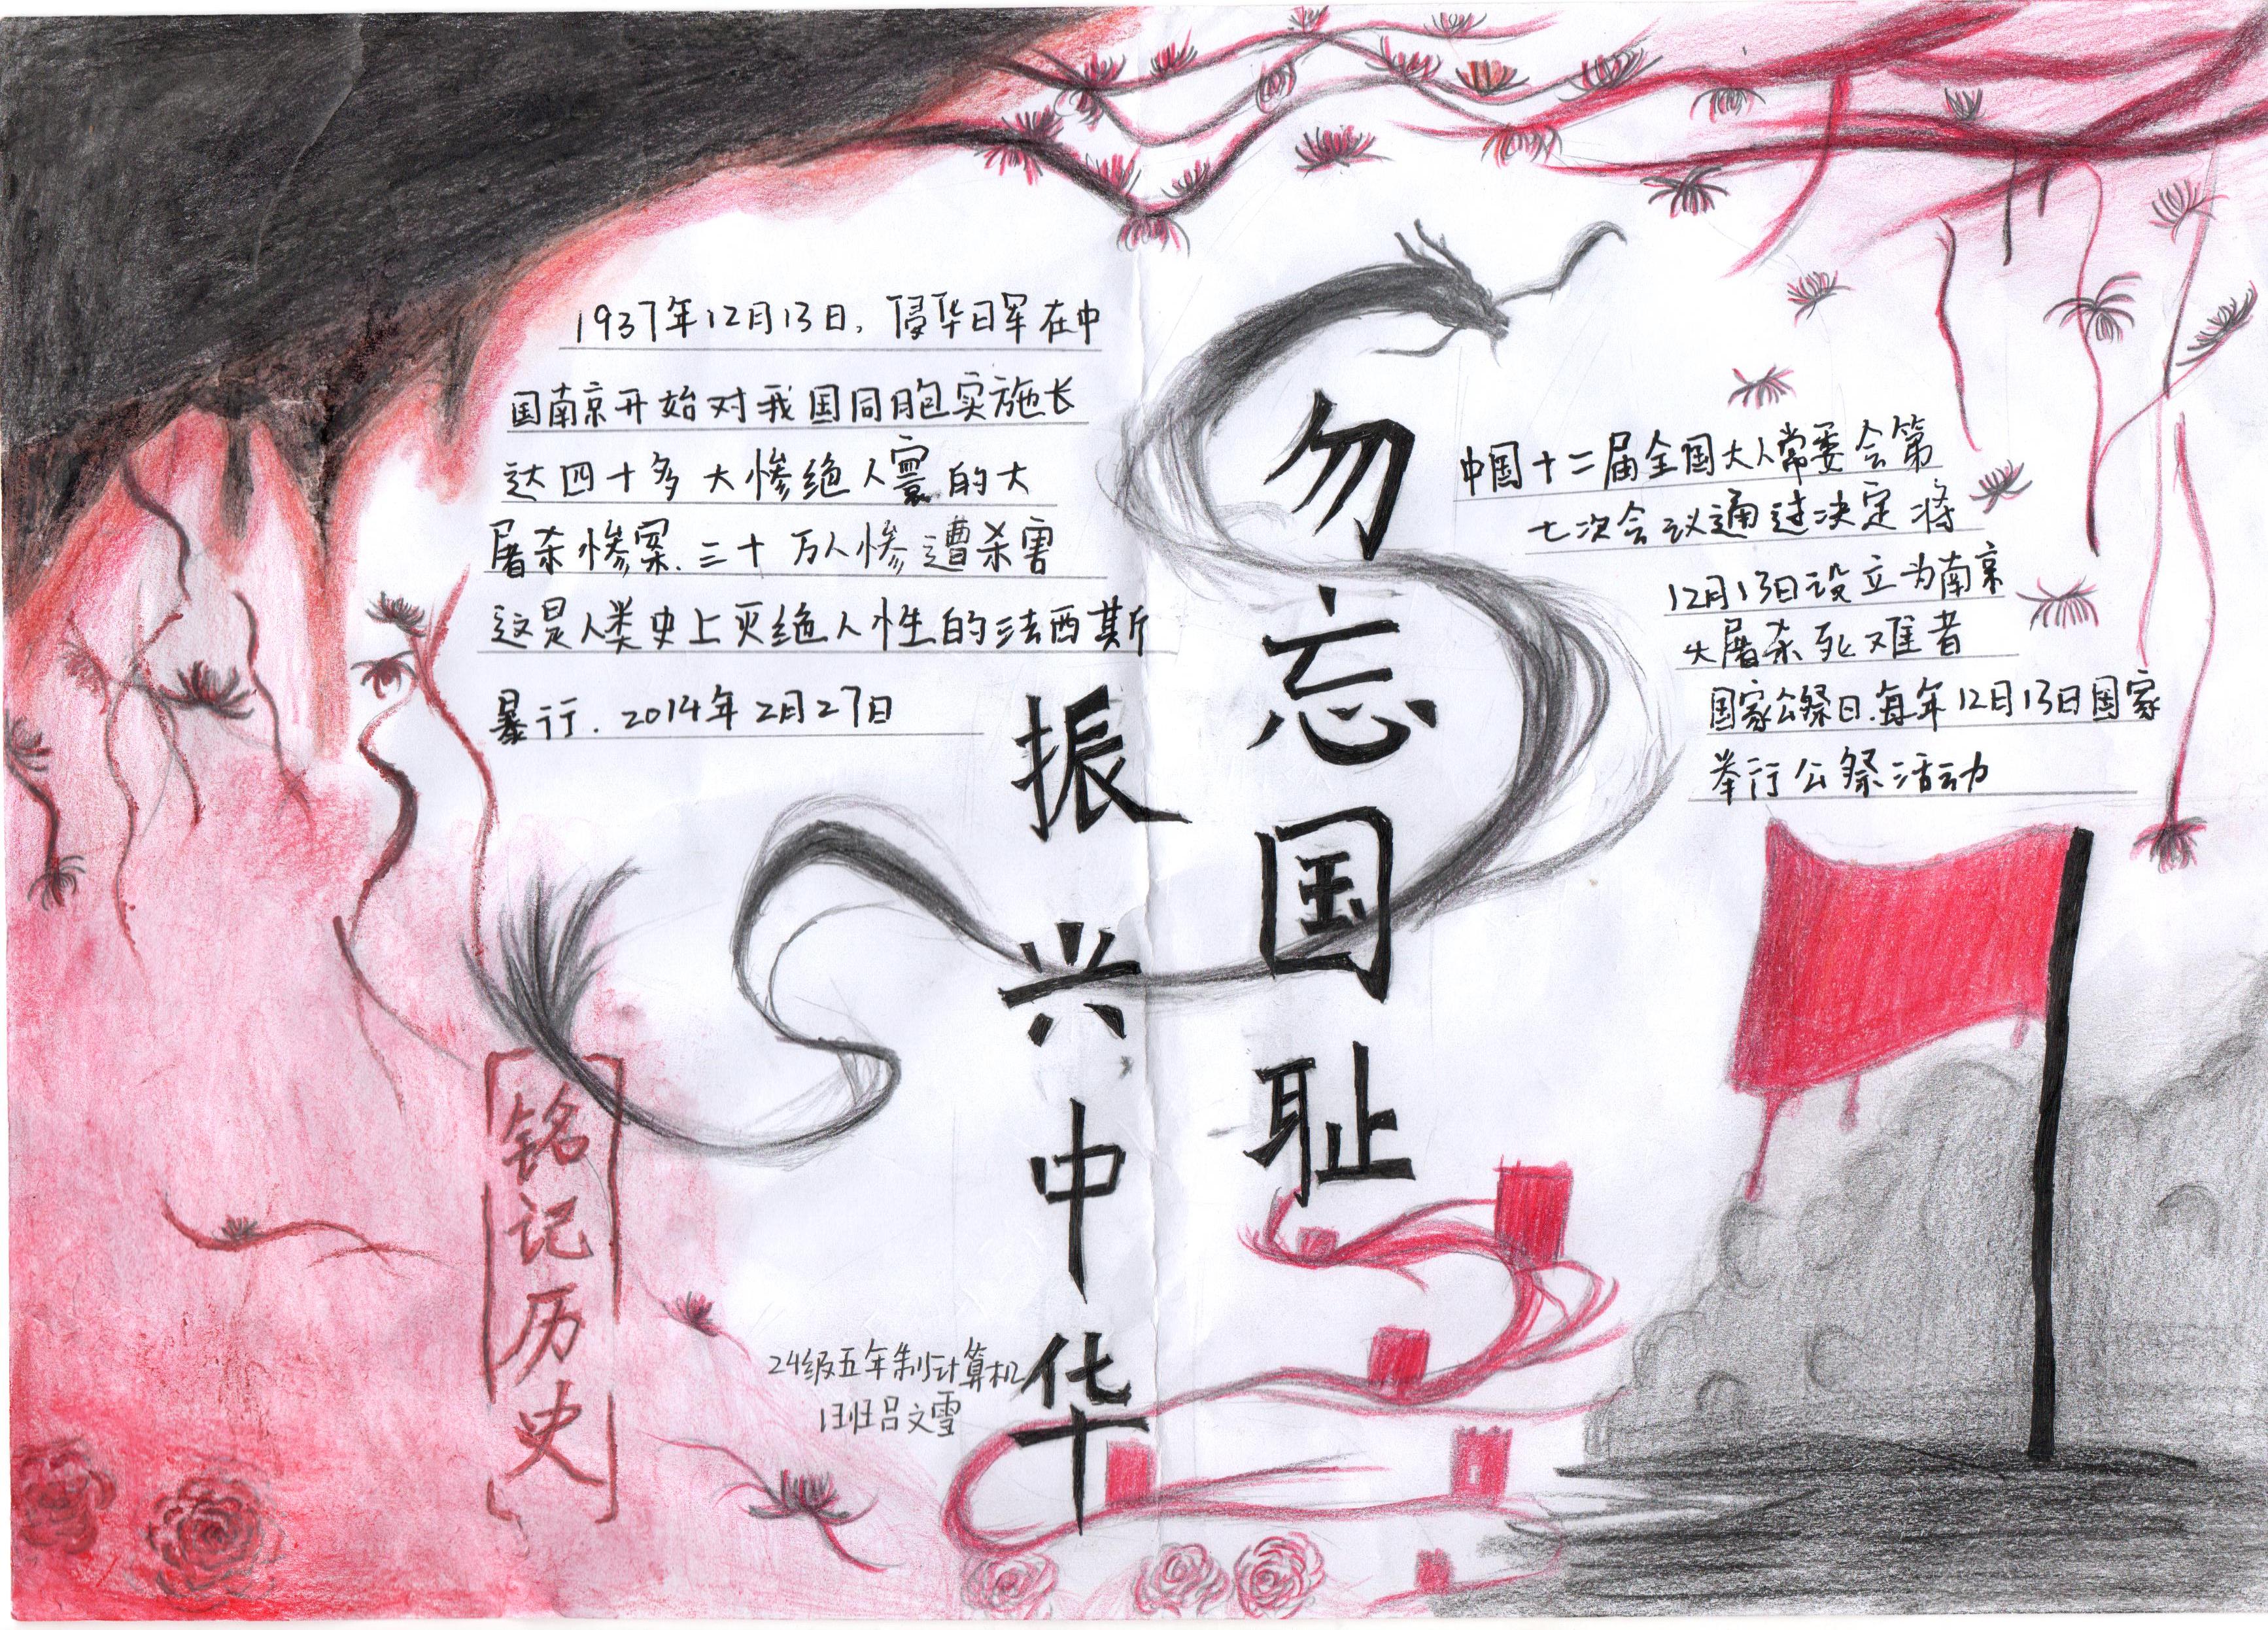 1937年12月13日，侵华日军在中
国南京开始对我国同胞实施长
达四十多大惨绝人寰的大
屠杀惨案.三十万人惨遭杀害
这是人类史上灭绝人性的法西斯
暴行.2014年2月27日
中国十二届全国大人常委会第
七次会议通过决定将
12月13日设立为南京
大屠杀死难者
国家公祭日.每年12月13日国家
举行公祭活动
勿忘国耻
振兴中华
铭记历史
24级五年制计算机
1班吕文雪